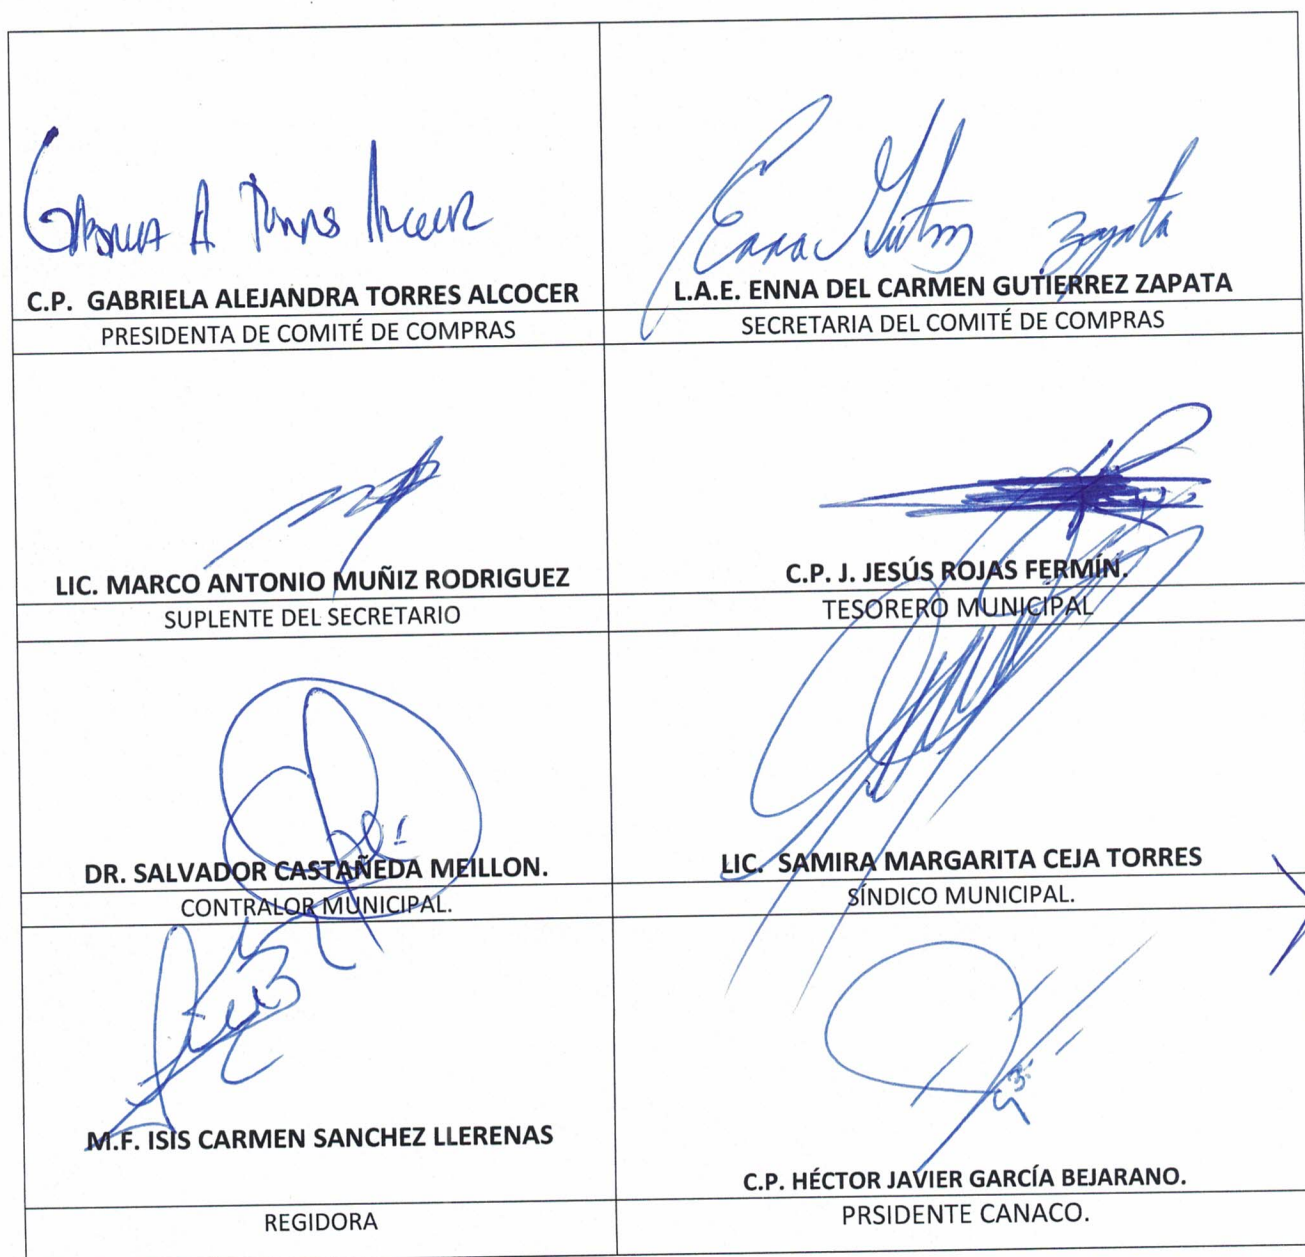 Gabriela A Torres Alcocer
Enna Gutierrez Zapata
C.P. GABRIELA ALEJANDRA TORRES ALCOCER
L.A.E. ENNA DEL CARMEN GUTIERREZ ZAPATA
PRESIDENTA DE COMITÉ DE COMPRAS
SECRETARIA DEL COMITÉ DE COMPRAS
LIC. MARCO ANTONIO MUÑIZ RODRIGUEZ
C.P. J. JESÚS ROJAS FERMÍN.
SUPLENTE DEL SECRETARIO
TESORERO MUNICIPAL
DR. SALVADOR CASTAÑEDA MEILLON.
LIC. SAMIRA MARGARITA CEJA TORRES
CONTRALOR MUNICIPAL.
SÍNDICO MUNICIPAL.
M.F. ISIS CARMEN SANCHEZ LLERENAS
C.P. HÉCTOR JAVIER GARCÍA BEJARANO.
REGIDORA
PRSIDENTE CANACO.